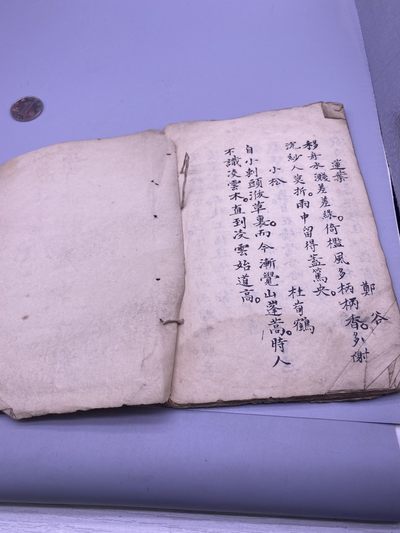 蓮葉 鄭谷
移舟水濺差差綠。倚檻風多柄柄香。多謝
浣紗人莫折。雨中留得蓋鴛央。
小松 杜荀鶴
自小刺頭深草裏。而今漸覺出蓬蒿。時人
不識凌雲木。直到凌雲始道高。